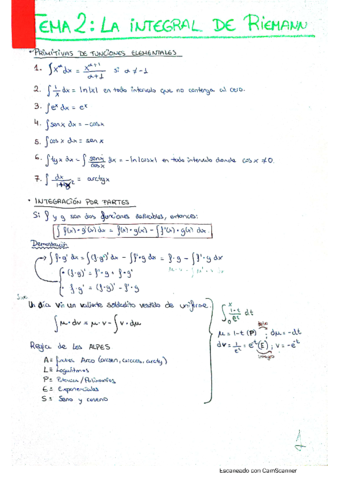 TEMA 2: LA INTEGRAL DE RIEMANN
• PRIMITIVAS DE FUNCIONES ELEMENTALES
1. ∫ x^α dx = x^(α+1)/(α+1) si α ≠ -1
2. ∫ 1/x dx = ln|x| en todo intervalo que no contenga al cero.
3. ∫ e^x dx = e^x
4. ∫ sen x dx = -cos x
5. ∫ cos x dx = sen x
6. ∫ tg x dx = ∫ sen x/cos x dx = -ln|cos x| en todo intervalo donde cos x ≠ 0.
7. ∫ dx/(1+x²) = arctg x
• INTEGRACIÓN POR PARTES
Si f y g son dos funciones derivables, entonces:
∫ f(x)·g'(x) dx = f(x)·g(x) - ∫ f'(x)·g(x) dx.
Demostración
∫ f·g' dx = ∫ (f·g)' dx - ∫ f'·g dx = f·g - ∫ f'·g dx
(f·g)' = f'·g + f·g'
f·g' = (f·g)' - f'·g
Un día vi un valiente soldadito vestido de uniforme.
∫ μ·dv = μ·v - ∫ v·dμ
Regla de los ALPES
A = Arco (arcsen, arccos, arctg)
L = Logaritmos
P = Polinomios
E = Exponenciales
S = Seno y coseno
∫₀^x (1-t)/e^t dt
μ = 1-t (P) ; dμ = -dt
dv = 1/e^t = e^-t (E) ; v = -e^-t
1
Escaneado con CamScanner